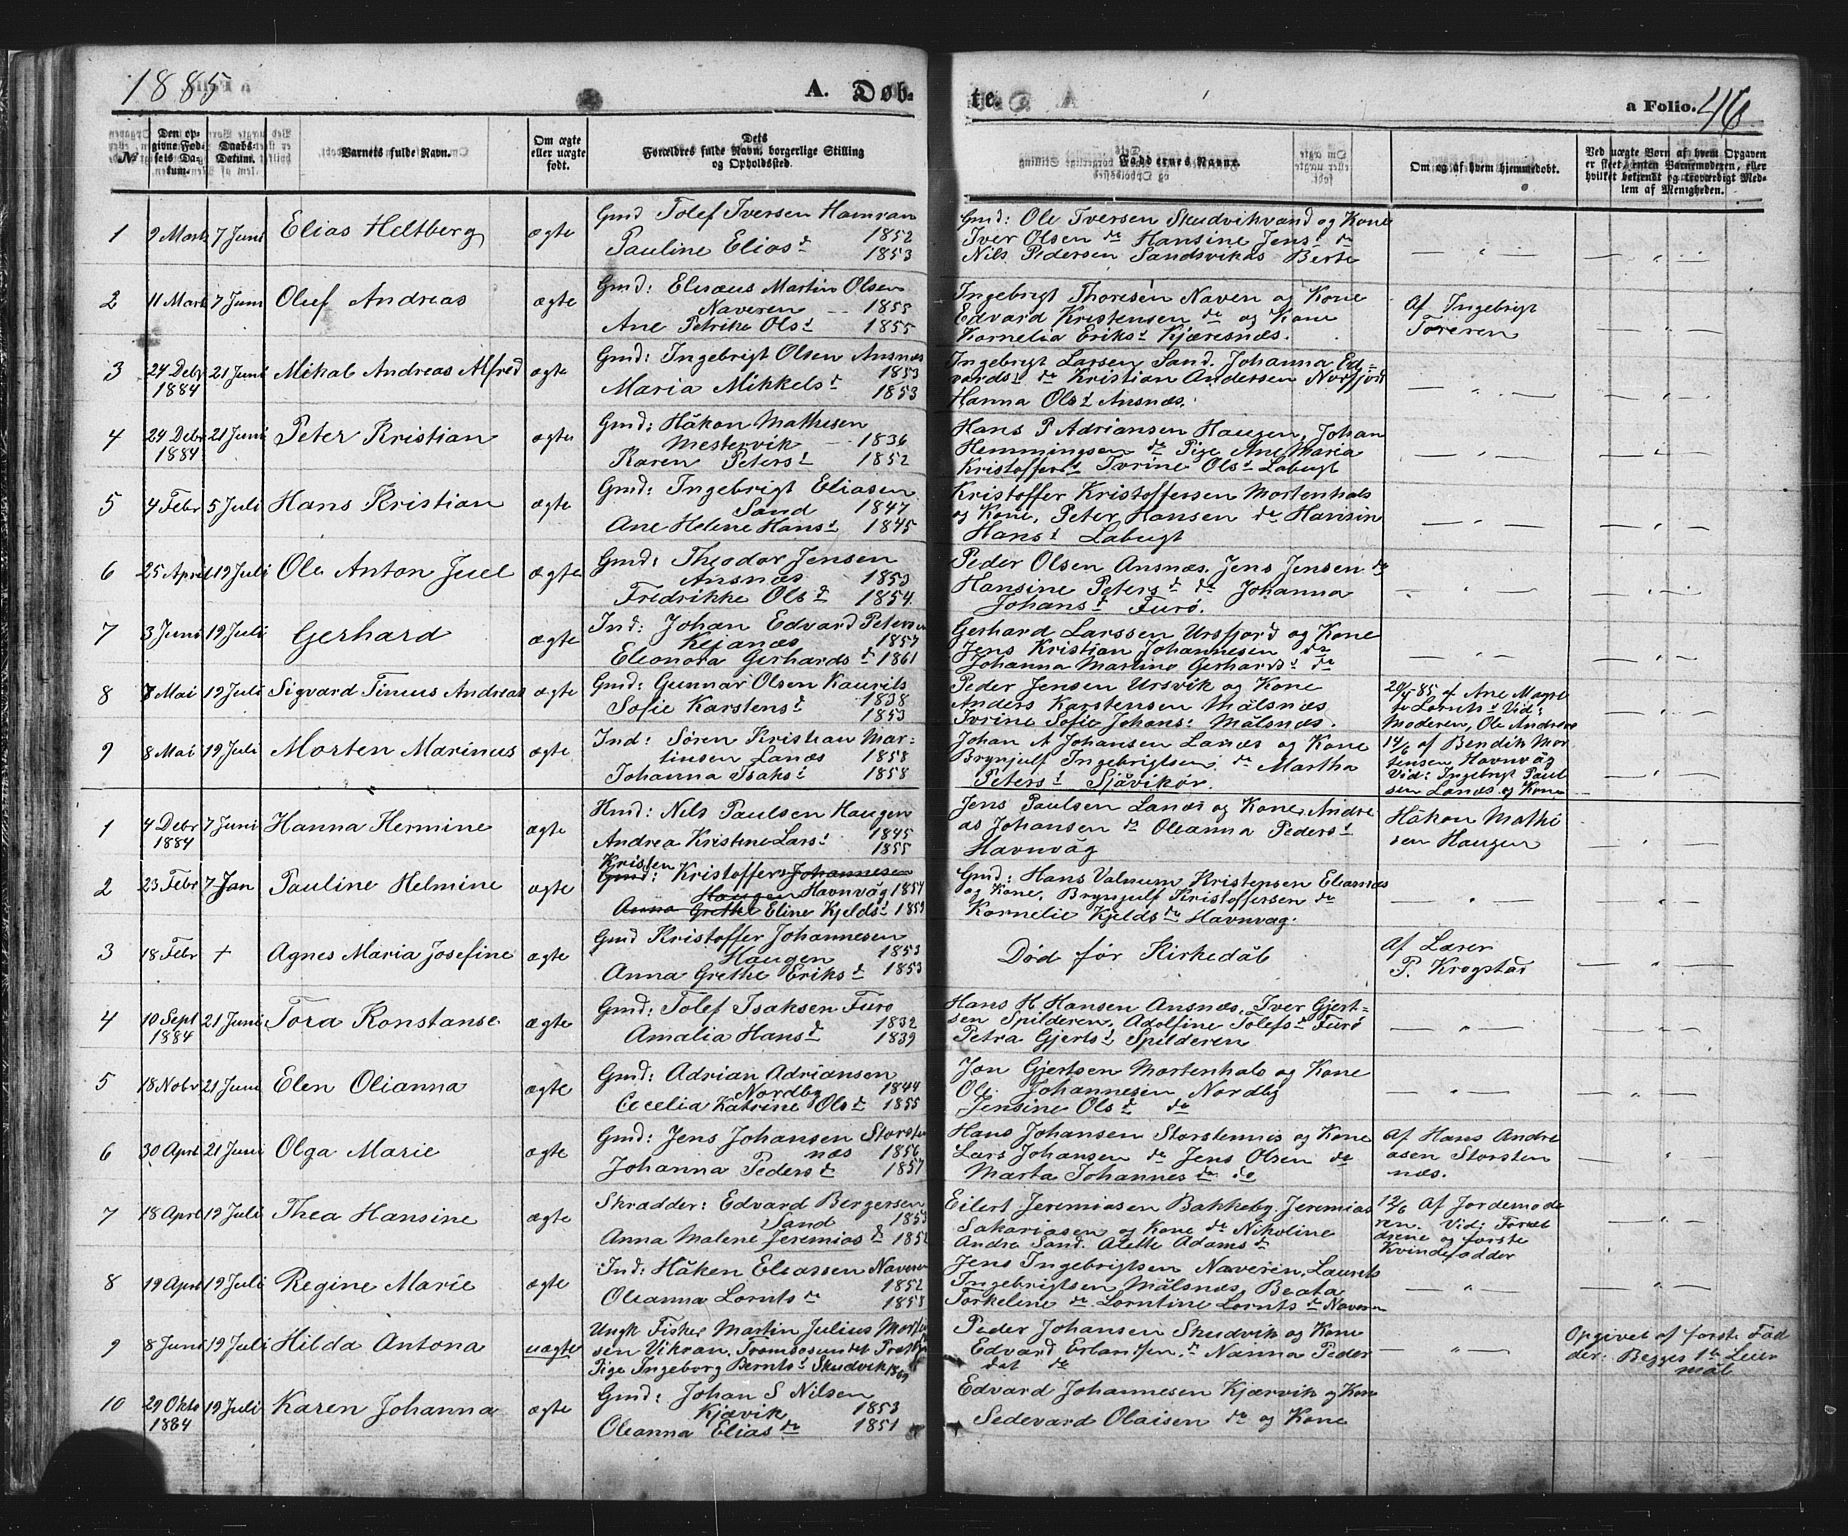 1885
A. Døb-
te.
a Folio. 46
№
Den op-
givne Fød-
sels Da-
tum.
Daabs-
Datum.
Barnets fulde Navn.
Om ægte
eller uægte
født.
Dets
Forældres fulde Navn, borgerlige Stilling
og Opholdssted.
Faddernes Navne.
Om og af hvem hjemmedøbt.
Ved uægte Børn af hvem Opgaven
er skeet, enten Barnemoderen, eller
hvilket bekjendt og troværdigt Med-
lem af Menigheden.
1 9 Marts 7 Juni Elias Heltberg ægte
Gmd Tolef Iversen Hamran 1852
Pauline Elias d 1853
Gmd: Ole Iversen Skudvikvand og Kone
Iver Olsen do Hansine Jens d do
Nils Pedersen Sandsvikas Berte
2 11 Marts 7 Juni Oluf Andreas ægte
Gmd: Elisæus Martin Olsen
Naveren 1855
Ane Petrike Ols d 1855
Ingebrigt Thoresen Naveren og Kone
Edvard Kristensen do og Kone
Kornelia Eriks d Kjæresnæs.
Af Ingebrigt
Toresen
3 24 Debr 1884 21 Juni Mikal Andreas Alfred ægte
Gmd: Ingebrigt Olsen Ansnæs
1853
Maria Mikkels d 1853
Ingebrigt Larsen Sand. Johanna Ed-
vards d do Kristian Andersen Norfjord
Hanna Ols d Ansnæs.
4 24 Debr 1884 21 Juni Peter Kristian ægte
Gmd: Håkon Mathisen
Mestervik 1836
Karen Peters d 1852
Hans P Adriansen Haugen, Johan
Hemmingsen do Pige Ane Maria
Kristoffers d Torine Ols d Labugt
5 4 Febr 5 Juli Hans Kristian ægte
Gmd: Ingebrigt Eliasen
Sand 1847
Ane Helene Hans d 1845
Kristoffer Kristoffersen Mortenhals
og Kone, Peter Hansen do Hansin
Hans d Labugt
6 25 April 19 Juli Ole Anton Juel ægte
Gmd: Theodor Jensen
Ansnæs 1853
Fredrikke Ols d 1854
Peder Olsen Ansnæs. Jens Jensen do
Hansine Peters d do Johanna
Johans d Furø.
7 3 Juni 19 Juli Gerhard ægte
Ind: Johan Edvard Petersen
1857
Eleonora Gerhards d 1861
Gerhard Larssen Ursfjord og Kone
Jens Kristian Johannesen do
Johanna Martine Gerhards d do
8 7 Mai 19 Juli Sigvard Tinius Andreas ægte
Gmd: Gunnar Olsen Kaurits
1838
Sofie Karstens d 1853
Peder Jensen Ursvik og Kone
Anders Karstensen Målsnæs
Torine Sofie Johans d Målsnæs.
20/4 85 af Ane Magre
te Lornts d Vid:
Moderen, Ole Andrers
9 8 Mai 19 Juli Morten Marinus ægte
Ind: Søren Kristian Mar-
tinsen Lanæs 1858
Johanna Isaks d 1858
Johan A Johansen Lanæs og Kone
Brynjulf Ingebrigtsen do Martha
Peters d Sjåvikør
14/6 af Bendik Mor
tensen Havnvåg
Vid: Ingebrigt Paul
sen Lanæs og Kone
1 4 Debr 1884 7 Juni Hanna Hermine ægte
Hmd: Nils Paulsen Haugen
1845
Andrea Kristine Lars d 1855
Jens Paulsen Lanæs og Kone, Andre
as Johansen do Oleanna Peders d
Havnvåg
Håkon Mathi
sen Haugen
2 23 Febr 7 Jan Pauline Helmine ægte
Kristen
Gmd: Kristoffers Johannesen
Haugen Havnvåg 1857
Anna Grethe Eline Kjelds d 1859
Gmd: Hans Valnum Kristensen Eliasnæs
og Kone, Brynjulf Kristoffersen do
Kornelie Kjelds do Havnvåg.
3 18 Febr + Agnes Maria Josefine ægte
Gmd Kristoffer Johannesen
Haugen 1853
Anna Grethe Eriks d 1853
Død før Kirkedåb
Af Lærer
P. Krogstad
4 10 Sept 1884 21 Juni Tora Konstanse ægte
Gmd: Tolef Isaksen Furø
1832
Amalia Hans d 1839
Hans H Hansen Ansnæs, Iver Gjert-
sen Spilderen, Adolfine Tolefs d Furø
Petra Gjerts d Spilderen
5 18 Nobr 21 Juni Elen Olianna ægte
Gmd: Adrian Adriansen
Nordby 1844
Cecelia Katrine Ols d 1855
Jon Gjertsen Mortenhals og Kone
Ole Johannesen Nordby
Jensine Ols d do
6 30 April 21 Juni Olga Marie ægte
Gmd: Jens Johansen Storsten
næs 1856
Johanna Peders d 1857
Hans Johansen Storstennæs og Kone
Lars Johansen do Jens Olsen do
Marta Johannes do do
Af Hans Andre
asen Storsten
næs.
7 18 April 19 Juli Thea Hansine ægte
Skrædder: Edvard Bergersen
Sand 1853
Anna Malene Jeremias d 1852
Eilert Jeremiasen Bakkeby, Jeremias
Sakariasen og Kone do Nikoline
Andre Sand. Alette Adams d
12/6 Af Jordemode
ren. Vid: Foræl
drene og første
Kvindefadder
8 19 April 19 Juli Regine Marie ægte
Ind: Håken Eliassen Naveren
1852
Oleanna Lornts do 1855
Jens Ingebrigtsen Naveren, Laurits
Ingebrigtsen Målsnæs, Beata
Torkeline do Lorntine Lornts do Naveren
9 8 Juni 19 Juli Hilda Antona uægte
Ungk Fisker Martin Julius Morten
sen Vikran, Tromsøsundet Præstgj
Pige Ingeborg Bernts d Skudvik 1861
Peder Johansen Skudvik og Kone
Edvard Erlandsen, do Nanna Peder
dat do
Opgivet af første Fad
der: Begges 1te Leier
mål
10 29 Okto 1884 19 Juli Karen Johanna ægte
Gmd: Johan S Nilsen
Kjævik 1853
Oleanna Elias do 1851
Edvard Johannesen Kjærvik og Kone
Sedevard Olaisen do og Kone